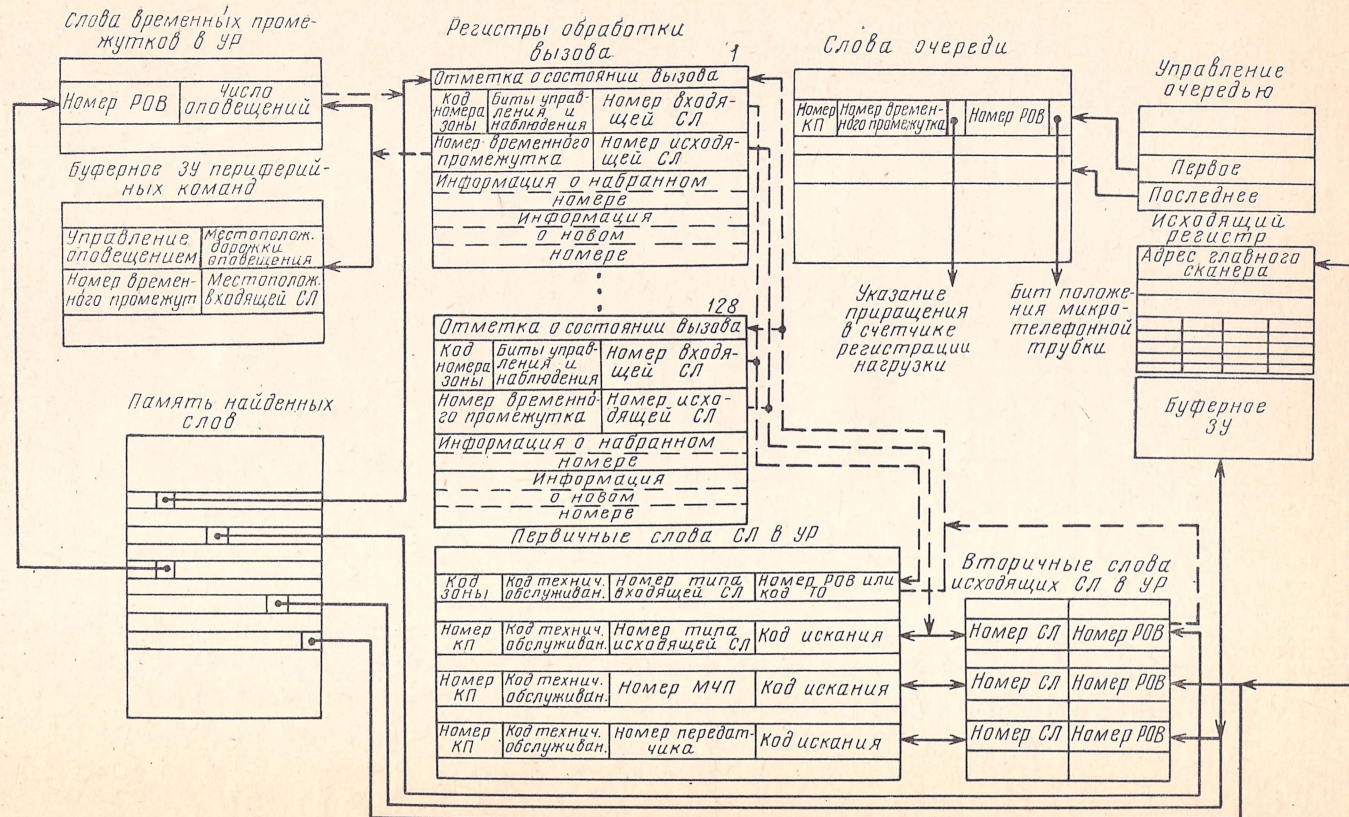 Слова временных проме-
жутков в УР
Номер РОВ
Число
оповещений
Буферное ЗУ периферий-
ных команд
Управление
оповещением
Местополож.
дорожки
оповещения
Номер времен-
ного промежут
Местополож.
входящей СЛ
Память найденных
слов
Регистры обработки
вызова
1
Отметка о состоянии вызова
Код
номера
зоны
Биты управ-
ления и
наблюдения
Номер входя-
щей СЛ
Номер временного
промежутка
Номер исходя-
щей СЛ
Информация о набранном
номере
Информация
о новом
номере
128
Отметка о состоянии вызова
Код
номера
зоны
Биты управ-
ления и
наблюдения
Номер входя-
щей СЛ
Номер временно-
го промежутка
Номер исхо-
дящей СЛ
Информация о набранном
номере
Информация
о новом
номере
Слова очереди
Номер
КП
Номер времен-
ного промежутка
Номер РОВ
Указание
приращения
в счетчике
регистрации
нагрузки
Бит положе-
ния микро-
телефонной
трубки
Управление
очередью
Первое
Последнее
Исходящий
регистр
Адрес главного
сканера
Буферное
ЗУ
Первичные слова СЛ в УР
Код
зоны
Код технич.
обслуживан.
Номер типа
входящей СЛ
Номер РОВ или
код ТО
Номер
КП
Код технич.
обслуживан.
Номер типа
исходящей СЛ
Код искания
Номер
КП
Код технич.
обслуживан.
Номер МЧП
Код искания
Номер
КП
Код технич.
обслуживан.
Номер передат-
чика
Код искания
Вторичные слова
исходящих СЛ в УР
Номер СЛ
Номер РОВ
Номер СЛ
Номер РОВ
Номер СЛ
Номер РОВ